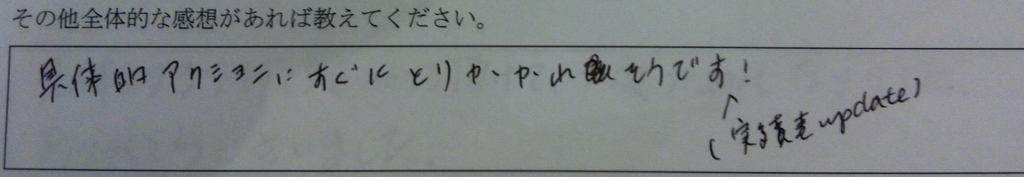 その他全体的な感想があれば教えてください。
具体的アクションにすぐにとりかかれそうです!
(実績表update)